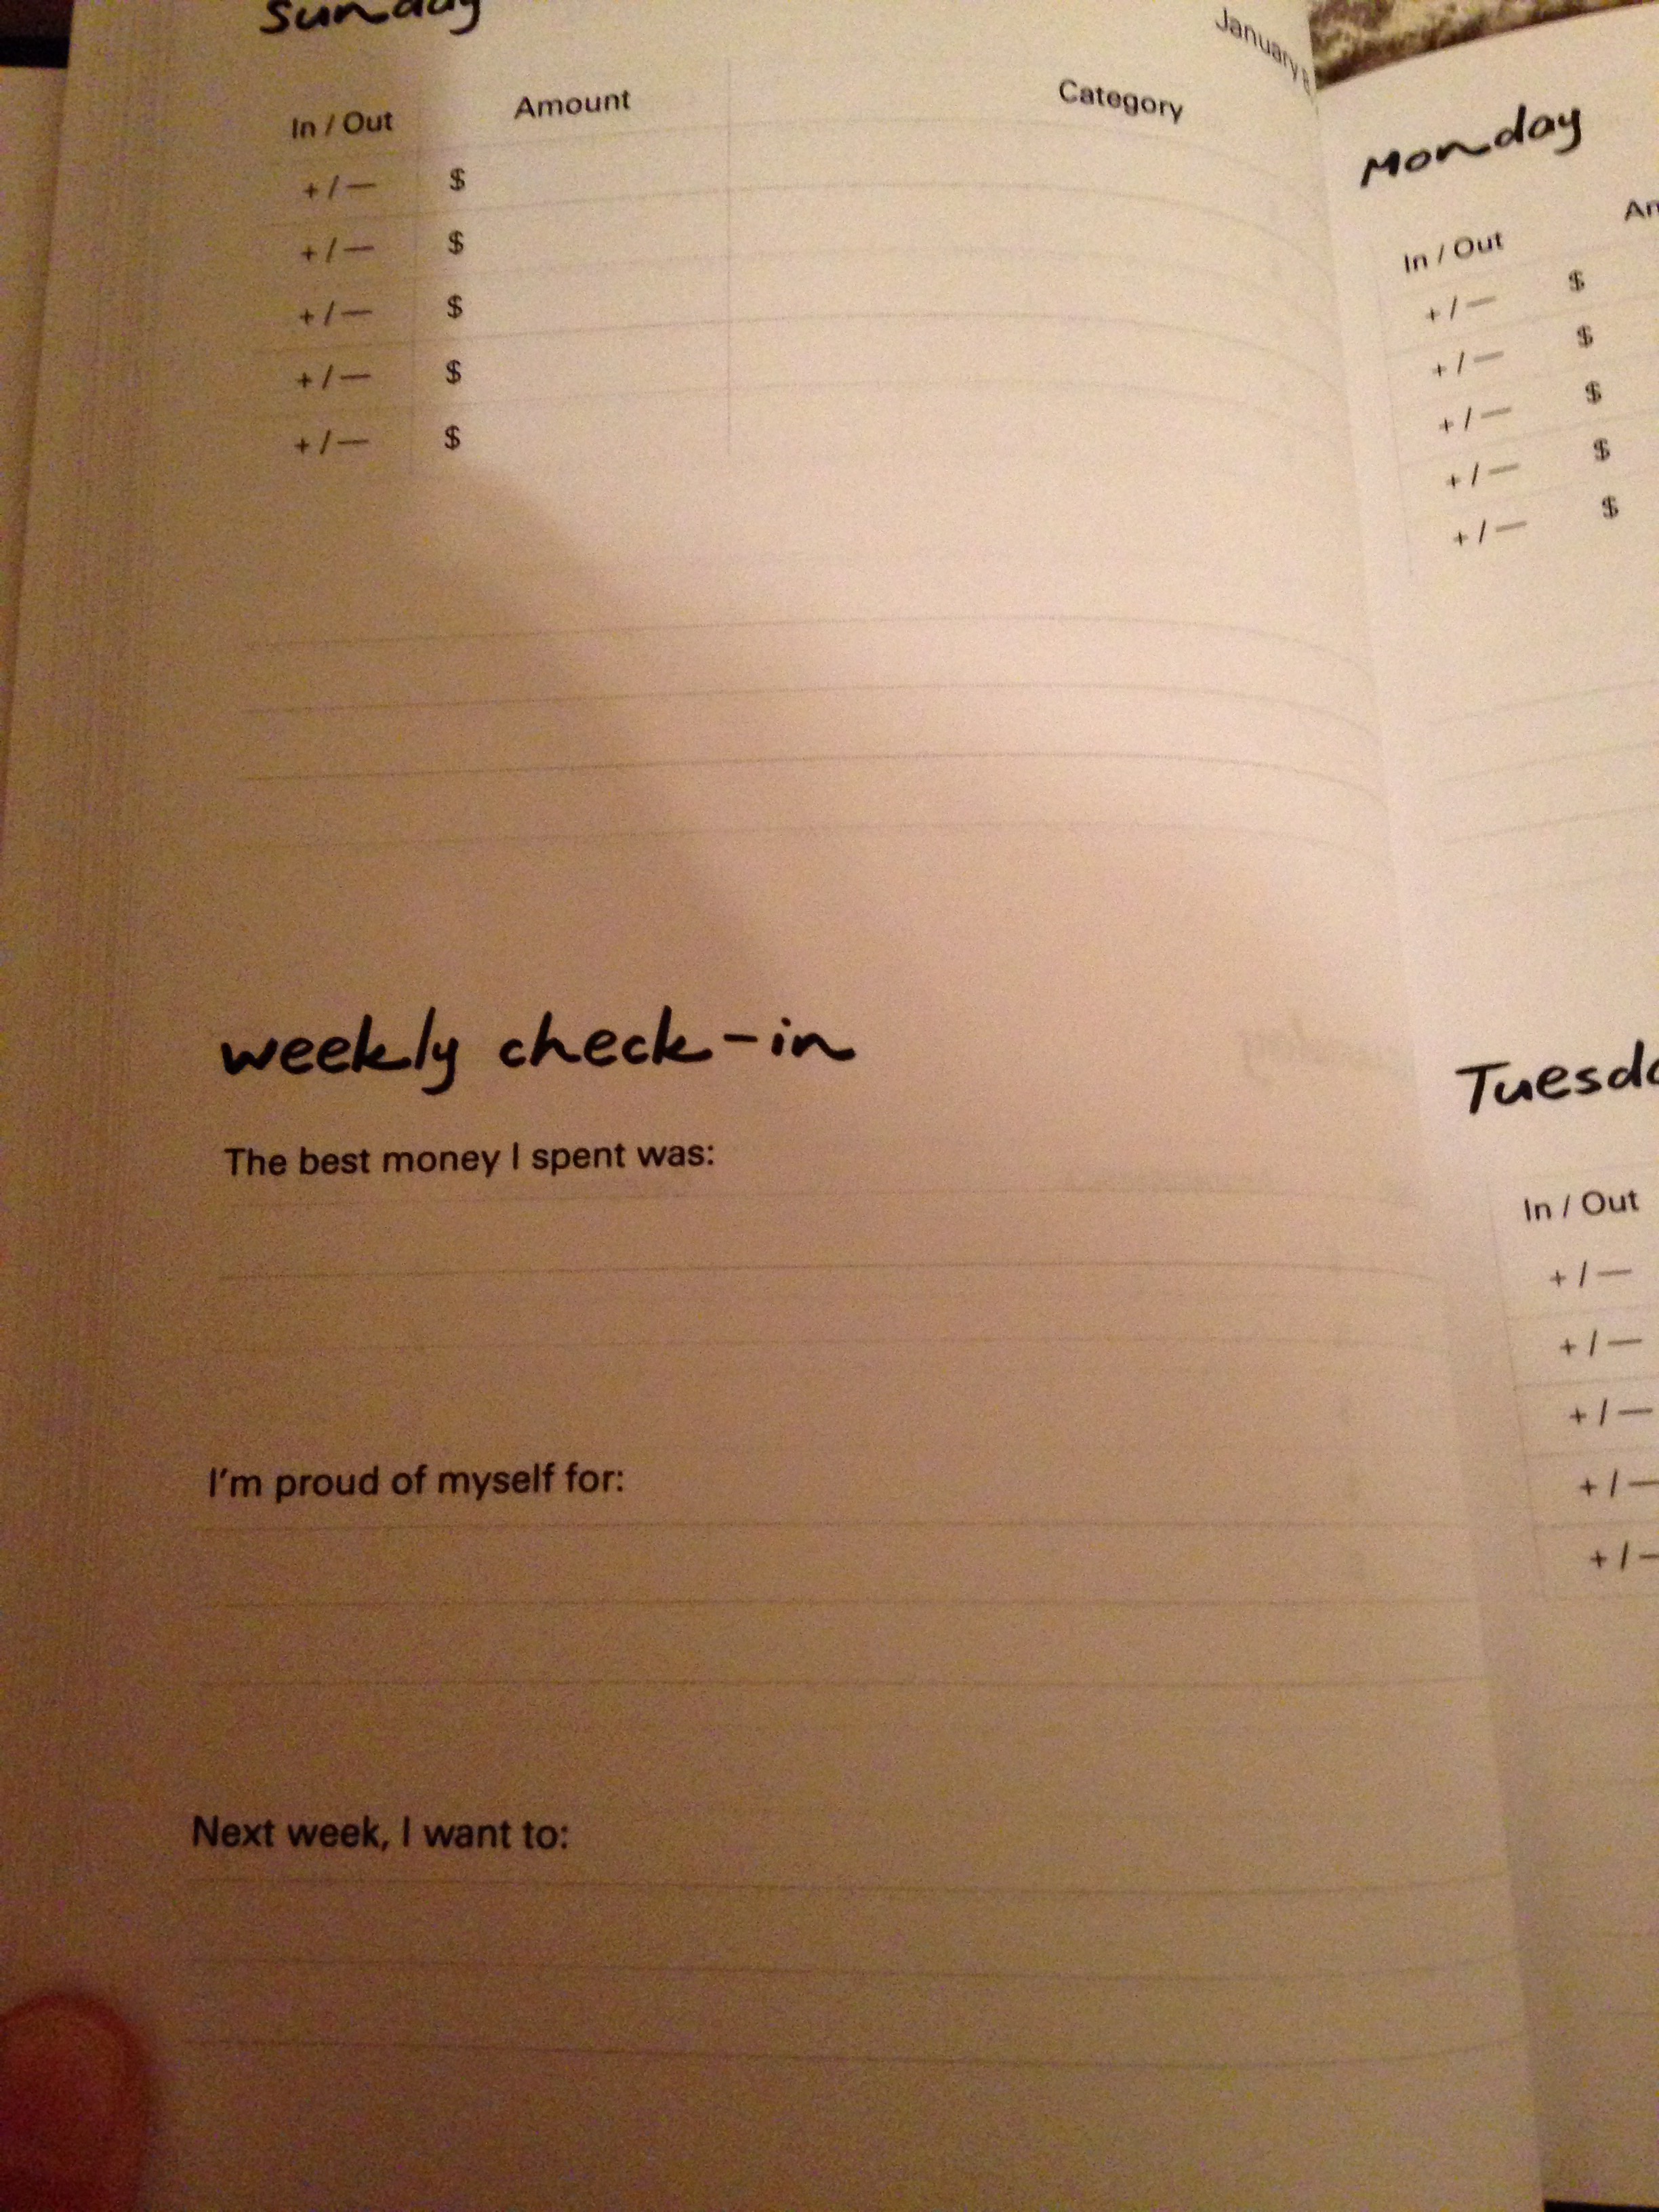 Sunday
January
In / Out Amount Category
+ / — $
+ / — $
+ / — $
+ / — $
+ / — $
weekly check-in
The best money I spent was:
I'm proud of myself for:
Next week, I want to:
Monday
In / Out
+ / — $
+ / — $
+ / — $
+ / — $
+ / — $
In / Out
+ / —
+ / —
+ / —
+ / —
+ / —